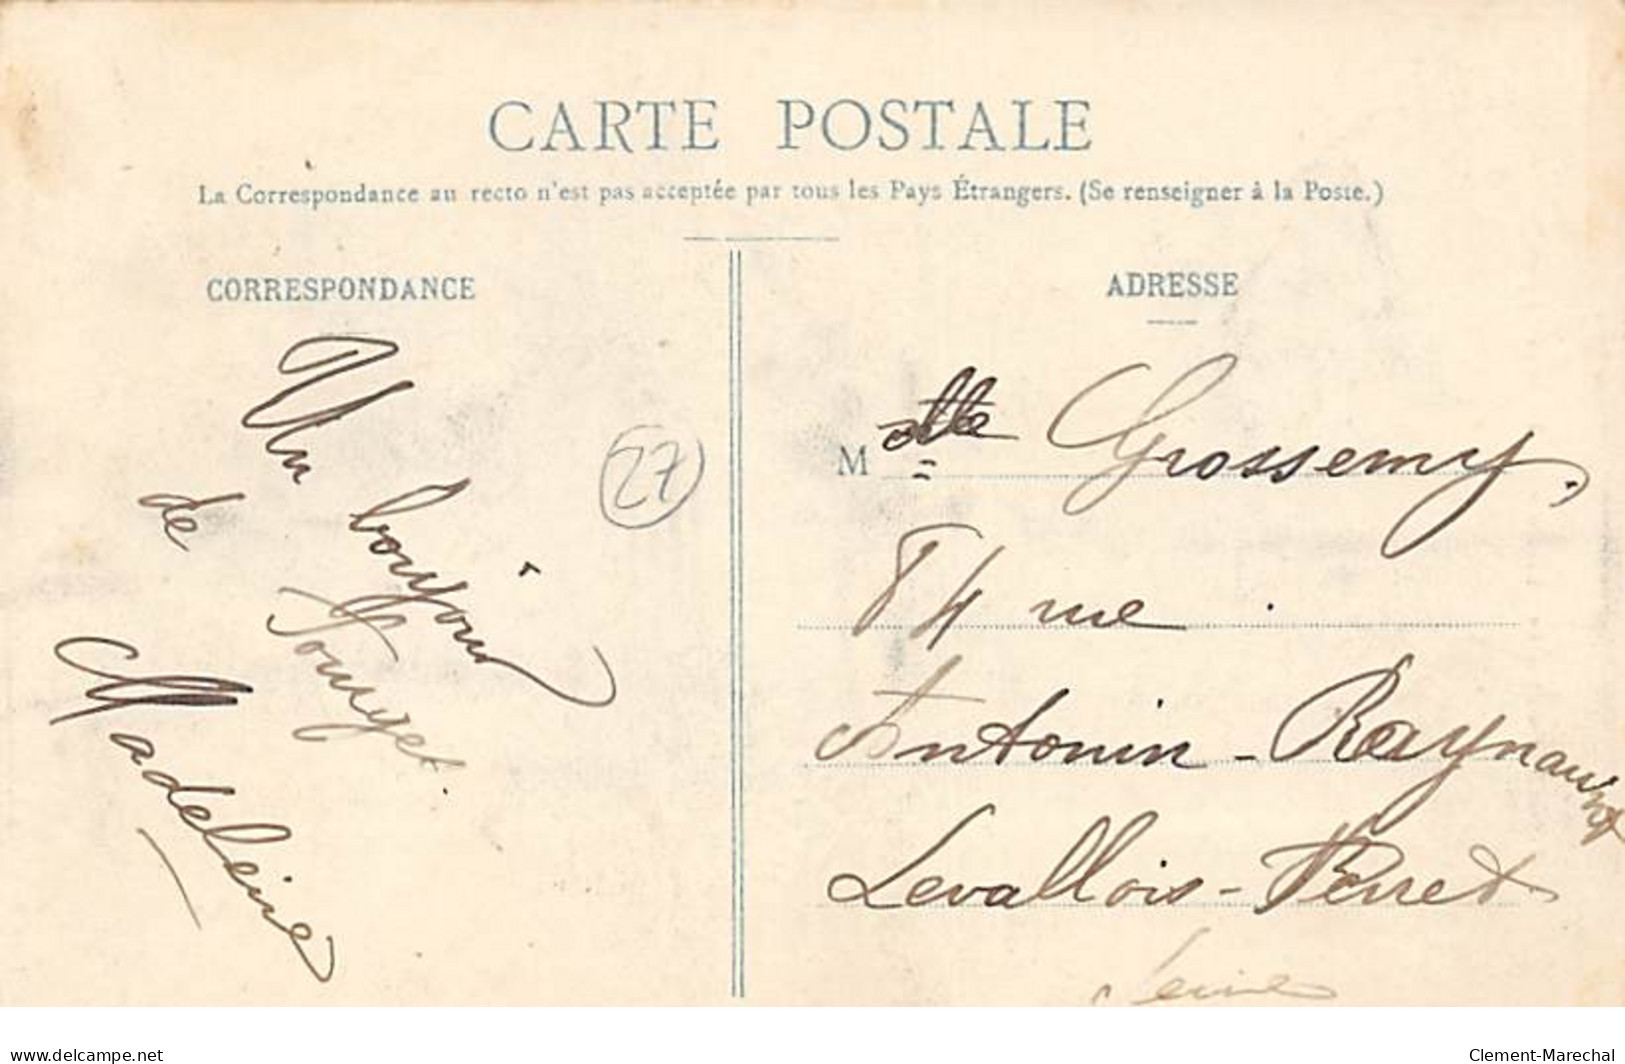 CARTE POSTALE
La Correspondance au recto n'est pas acceptée par tous les Pays Étrangers. (Se renseigner à la Poste.)
CORRESPONDANCE
Un bonjour
de
Madeleine
27
ADRESSE
Melle Grossemy,
84 rue
Antonin-Raynaud
Levallois-Perret
Seine
delcampe.net
Clement-Marechal